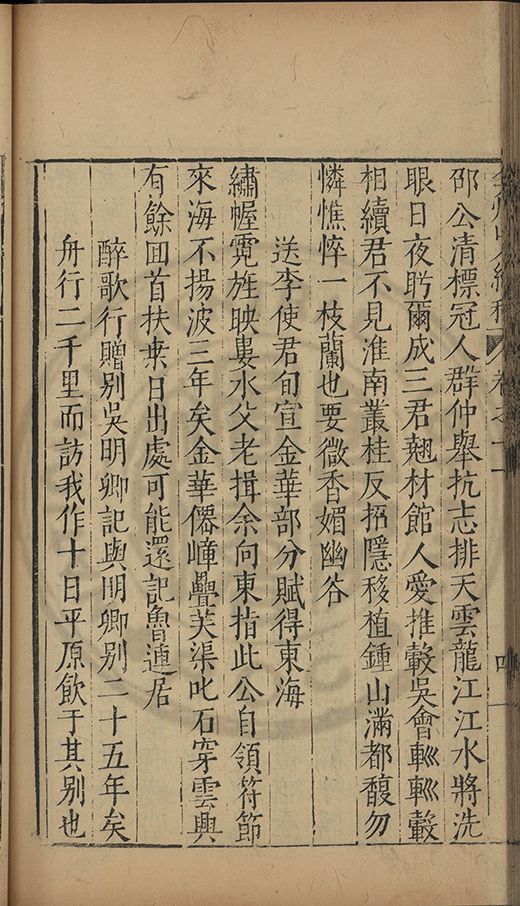 弇州山人續稿 卷之十一
邵公清標冠人群仲舉抗志排天雲龍江江水將洗
眼日夜盻爾成三君翹材館人愛推轂吳會輀輀轂
相續君不見淮南叢桂反招隱移植鍾山滿都馥勿
憐憔悴一枝蘭也要微香媚幽谷
送李使君旬宣金華部分賦得東海
繡幄霓旌映婁水父老揖余向東指此公自領符節
來海不揚波三年矣金華僊嶂疊芙渠叱石穿雲興
有餘回首扶桒日出處可能還記魯連居
醉歌行贈別吳明卿記與明卿別二十五年矣
舟行二千里而訪我作十日平原飲于其別也